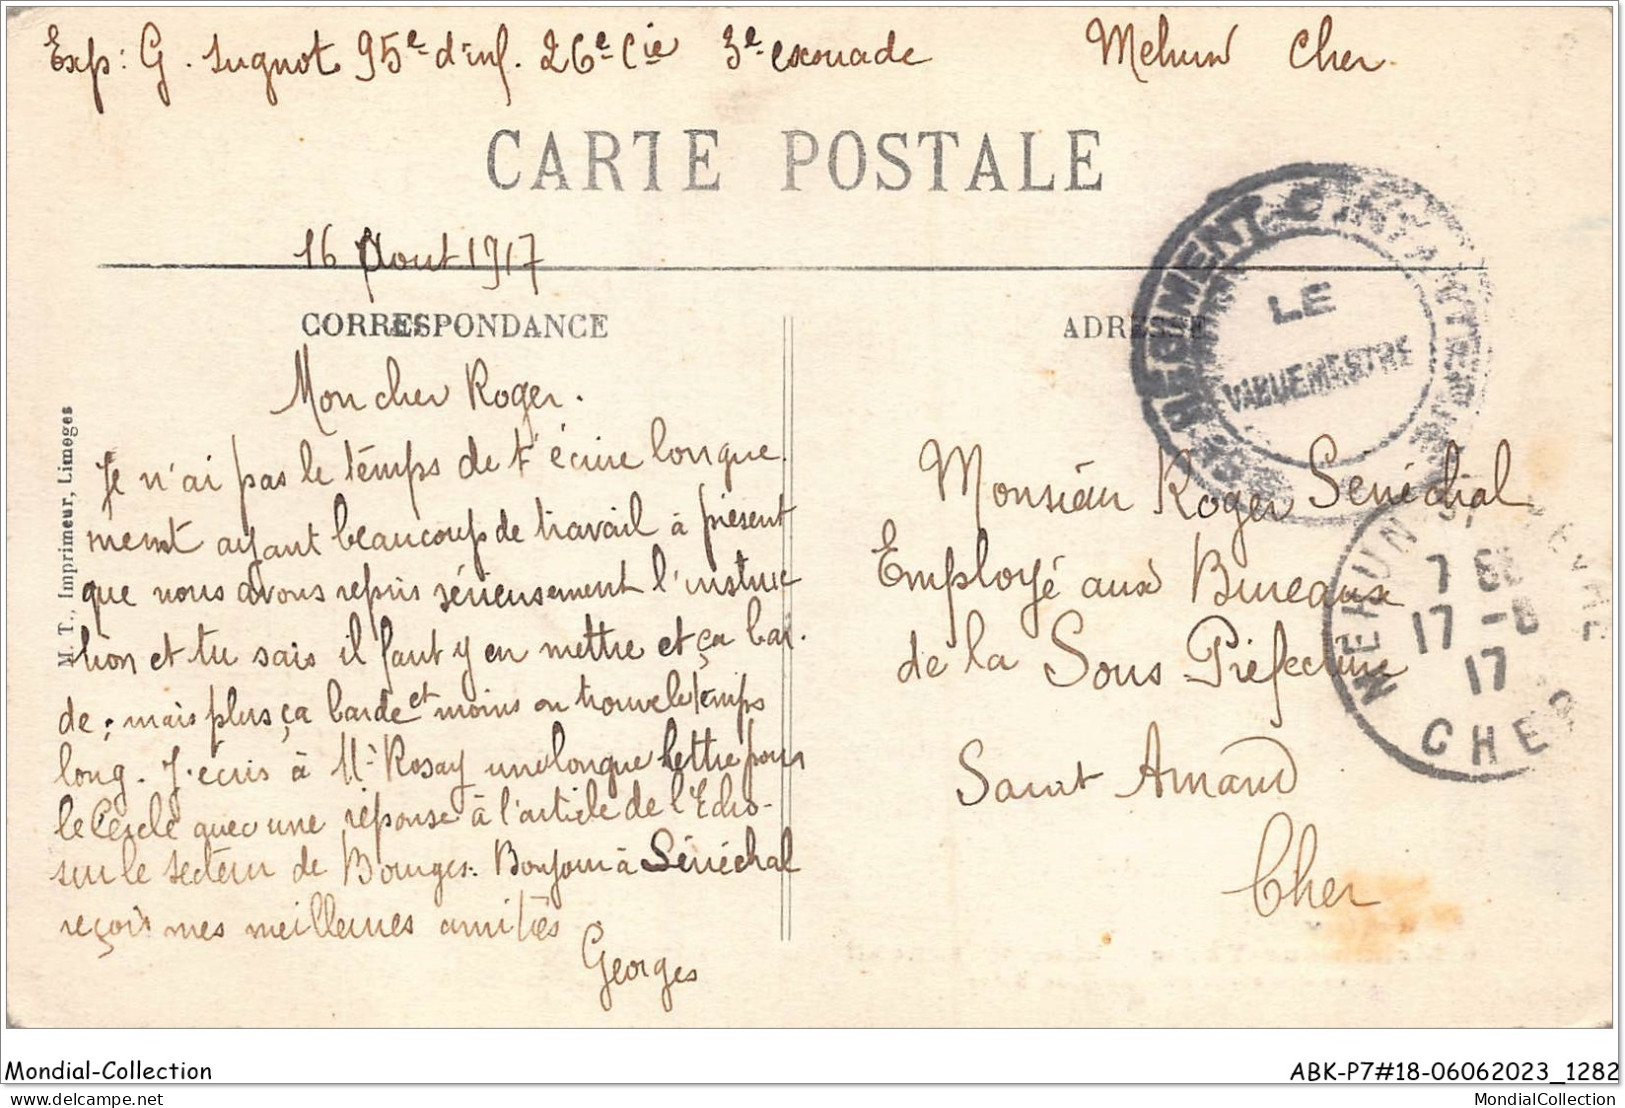 Exp: G. Sugnot 95e d'inf. 26e Cie 3e escouade Mehun Cher.
CARTE POSTALE
16 Aout 1917
CORRESPONDANCE
Mon cher Roger.
Je n'ai pas le temps de t'écrire longue.
ment ayant beaucoup de travail à présent
que nous avons repris sérieusement l'instruc
tion et tu sais il faut y en mettre et ça bar.
de; mais plus ça barde et moins on trouve le temps
long. J'écris à Mr Rosay une longue lettre pour
le Cercle avec une réponse à l'article de l'Echo
sur le secteur de Bourges. Bonjour à Sénéchal
reçois mes meilleures amitiés
Georges
M. T., Imprimeur, Limoges
ADRESSE
REGIMENT
LE
VAGUEMESTRE
Monsieur Roger Sénéchal
Employé aux Bureaux
de la Sous Préfecture
Saint Amand
Cher
MEHUN S. YEVRE
7
17 -8
17
CHER
Mondial-Collection
ABK-P7#18-06062023_1282
delcampe.net
MondialCollection